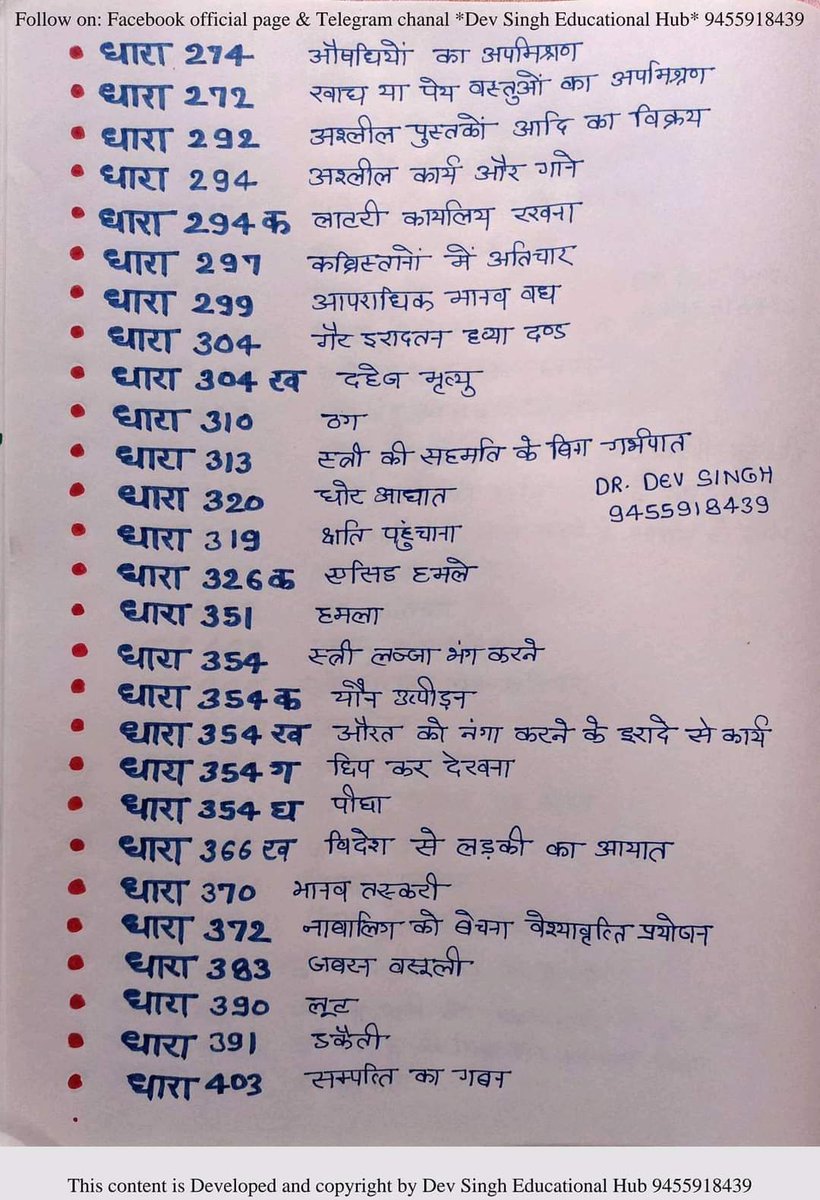 Follow on: Facebook official page & Telegram chanal *Dev Singh Educational Hub* 9455918439
धारा 274 औषधियों का अपमिश्रण
धारा 272 खाद्य या पेय वस्तुओं का अपमिश्रण
धारा 292 अश्लील पुस्तकों आदि का विक्रय
धारा 294 अश्लील कार्य और गाने
धारा 294 क लाटरी कार्यालय रखना
धारा 297 कब्रिस्तानों में अतिचार
धारा 299 आपराधिक मानव वध
धारा 304 गैर इरादतन हत्या दण्ड
धारा 304 ख दहेज मृत्यु
धारा 310 ठग
धारा 313 स्त्री की सहमति के बिना गर्भपात
DR. DEV SINGH
9455918439
धारा 320 घोर आघात
धारा 319 क्षति पहुंचाना
धारा 326 क एसिड हमले
धारा 351 हमला
धारा 354 स्त्री लज्जा भंग करने
धारा 354 क यौन उत्पीड़न
धारा 354 ख औरत को नंगा करने के इरादे से कार्य
धारा 354 ग छिप कर देखना
धारा 354 घ पीछा
धारा 366 ख विदेश से लड़की का आयात
धारा 370 मानव तस्करी
धारा 372 नाबालिग को बेचना वेश्यावृत्ति प्रयोजन
धारा 383 जबरन वसूली
धारा 390 लूट
धारा 391 डकैती
धारा 403 सम्पत्ति का गबन
This content is Developed and copyright by Dev Singh Educational Hub 9455918439